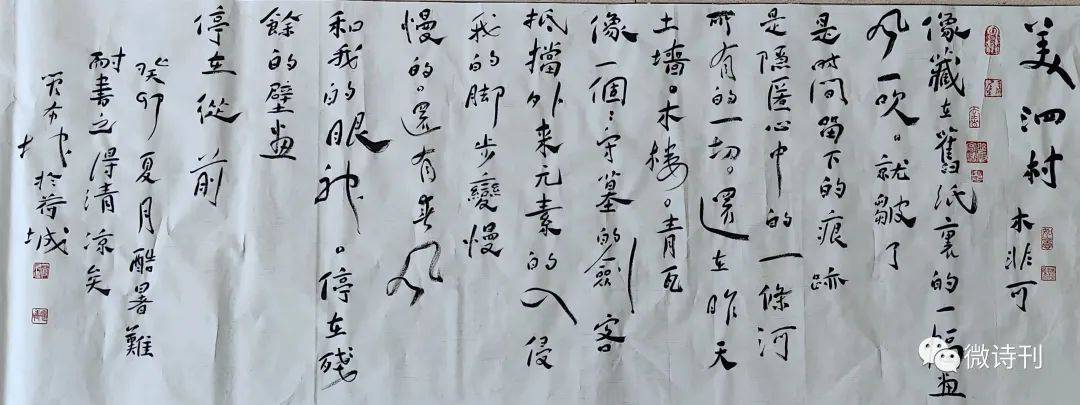 美泗村 木非可
像藏在舊纸裏的一幅画
风一吹。就皺了
是时间留下的痕跡
是隱匿心中的一條河
所有的一切。還在昨天
土墙。木楼。青瓦
像一個〻守墓的劍客
抵擋外来元素的入侵
我的脚步變慢
慢的。還有春风
和我的眼神。停在殘
餘的壁画
停在從前
癸卯夏月酷暑難
耐書之得清凉矣
於荷城
微诗刊